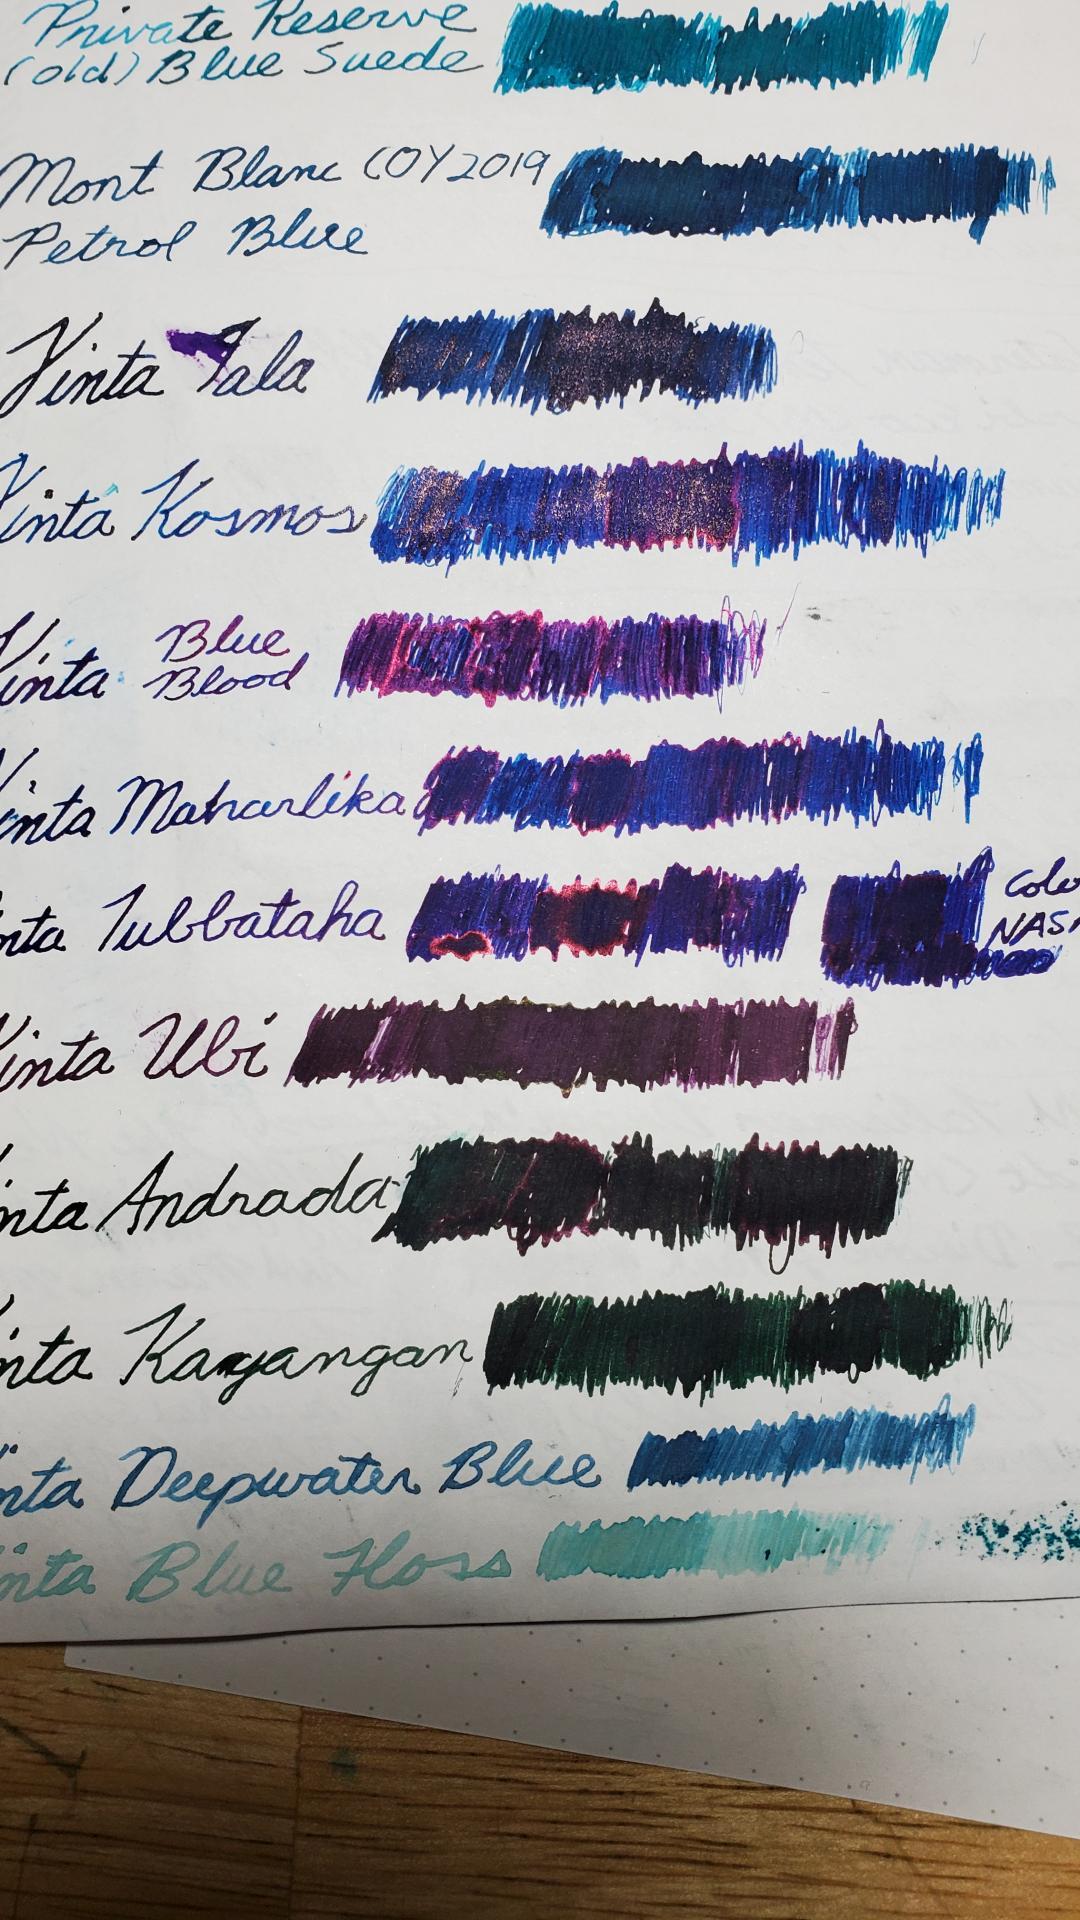 Private Reserve
(old) Blue Suede
Mont Blanc COY2019
Petrol Blue
Vinta Tala
Vinta Kosmos
Vinta Blue
Blood
Vinta Maharlika
nta Tubbataha
Colo
NAS
inta Ubi
nta Andrada
inta Kayangan
nta Deepwater Blue
inta Blue Floss